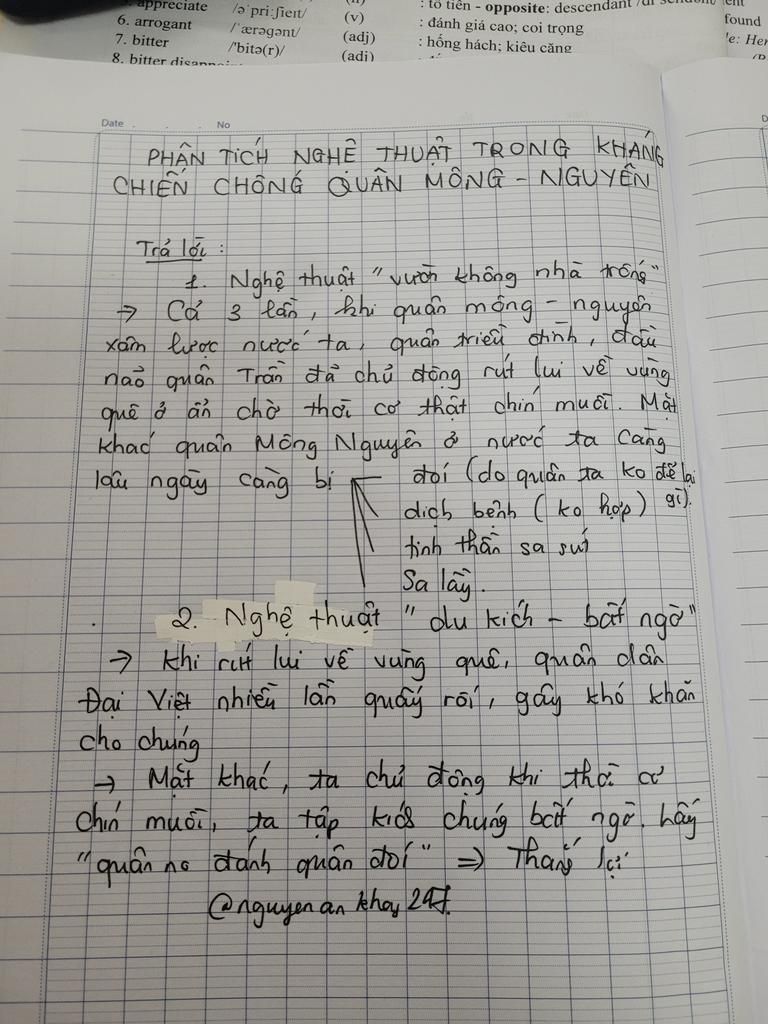 appreciate /əˈpriːʃieɪt/ (v) : đánh giá cao; coi trọng
6. arrogant /ˈærəgənt/ (adj) : hống hách; kiêu căng
7. bitter /'bitə(r)/ (adj)
8. bitter
: tổ tiên - opposite: descendant
found
Date No
PHÂN TÍCH NGHỆ THUẬT TRONG KHÁNG
CHIẾN CHỐNG QUÂN MÔNG - NGUYÊN
Trả lời :
1. Nghệ thuật "vườn không nhà trống"
→ Cả 3 lần, khi quân mông - nguyên
xâm lược nước ta, quân triều đình, đầu
não quân Trần đã chủ động rút lui về vùng
quê ở ẩn chờ thời cơ thật chín muồi. Mặt
khác quân Mông Nguyên ở nước ta càng
lâu ngày càng bị đói (do quân ta ko để lại gì).
dịch bệnh (ko hợp)
tinh thần sa sút
Sa lầy.
2. Nghệ thuật "du kích - bất ngờ"
→ khi rút lui về vùng quê, quân dân
Đại Việt nhiều lần quấy rối, gây khó khăn
cho chúng
→ Mặt khác, ta chủ động khi thời cơ
chín muồi, ta tập kích chúng bất ngờ. Lấy
"quân no đánh quân đói" ⇒ Thắng lợi
@nguyen an khay 247.